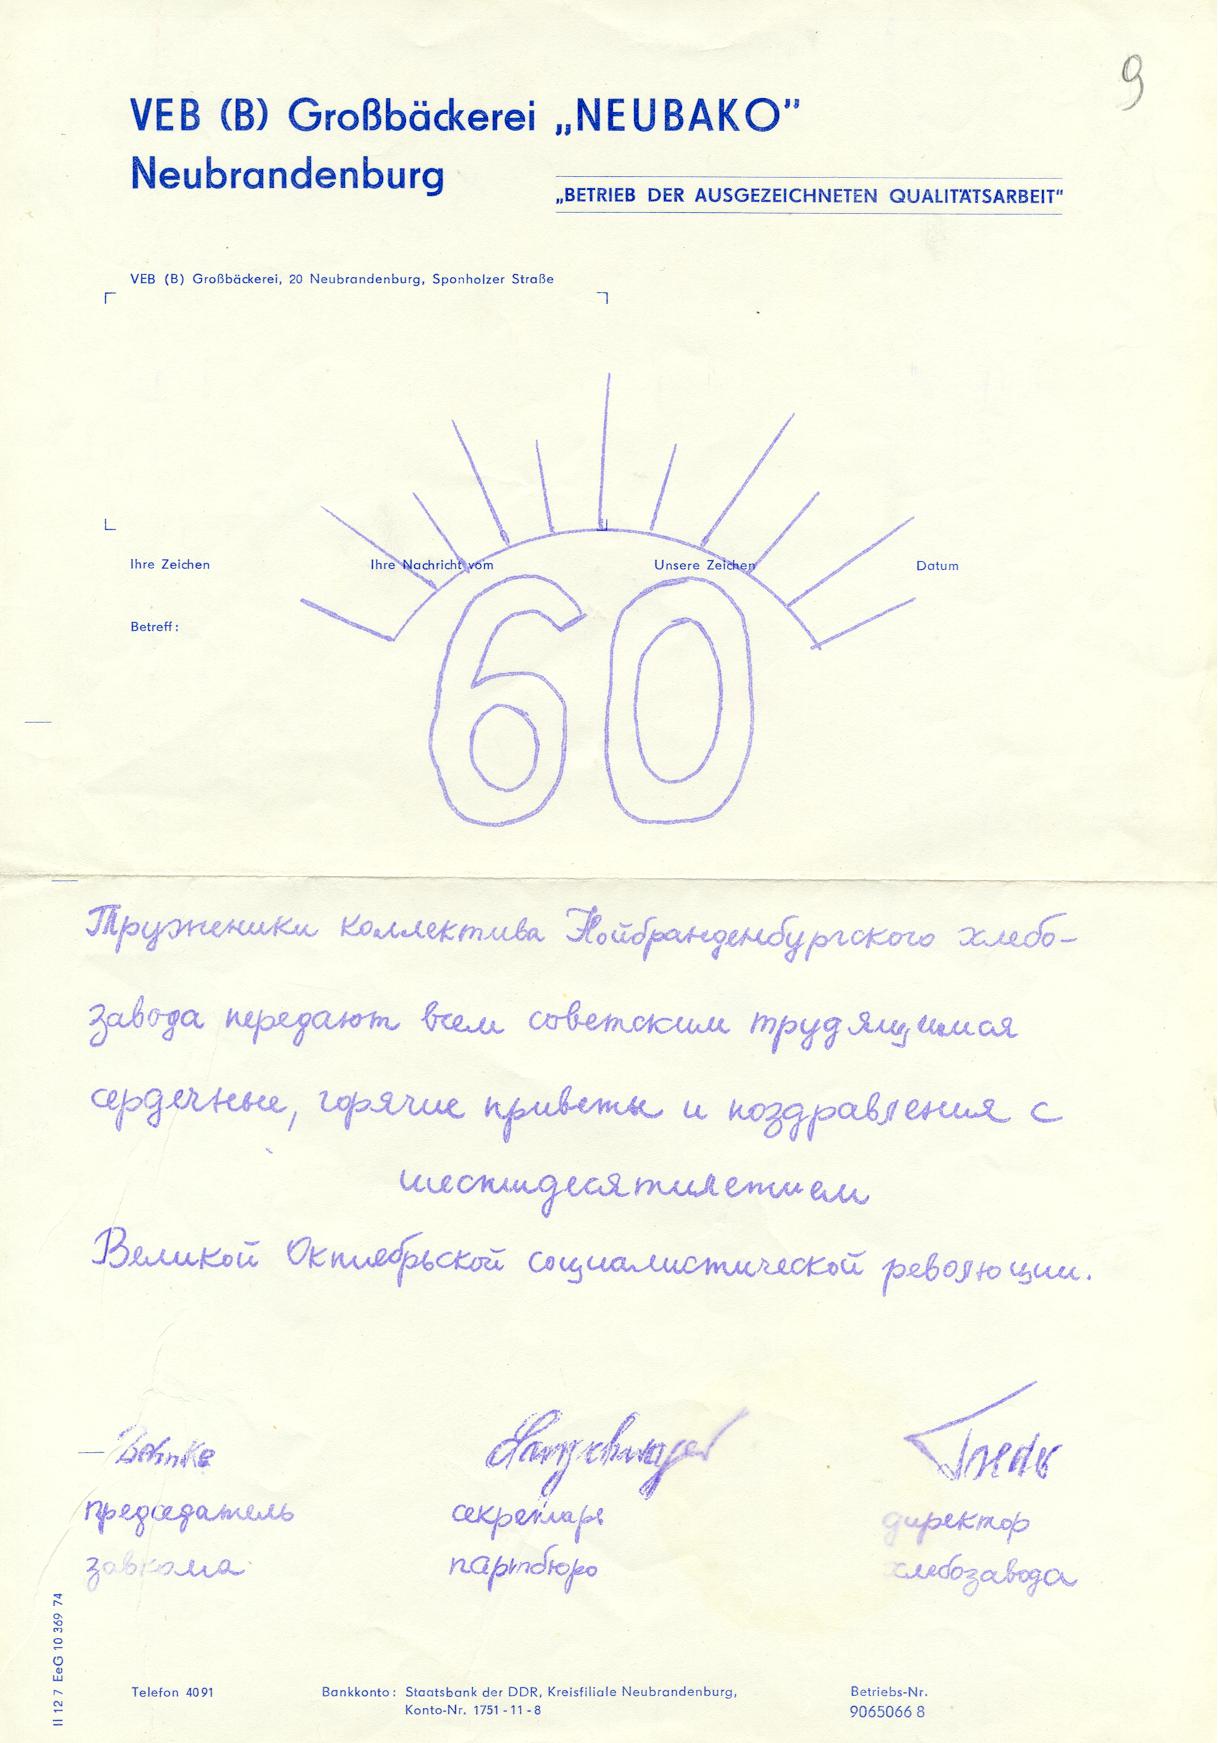 9
VEB (B) Großbäckerei „NEUBAKO”
Neubrandenburg
„BETRIEB DER AUSGEZEICHNETEN QUALITÄTSARBEIT“
VEB (B) Großbäckerei, 20 Neubrandenburg, Sponholzer Straße
Ihre Zeichen Ihre Nachricht vom Unsere Zeichen Datum
Betreff:
60
Труженики коллектива Нойбранденбургского хлебо-
завода передают всем советским трудящимся
сердечные, горячие приветы и поздравления с
шестидесятилетием
Великой Октиебрьской социалистической революции.
председатель секретарь директор
завкома партбюро хлебозавода
II 12 7 EeG 10 369 74
Telefon 4091 Bankkonto: Staatsbank der DDR, Kreisfiliale Neubrandenburg, Betriebs-Nr.
Konto-Nr. 1751-11-8 9065066 8